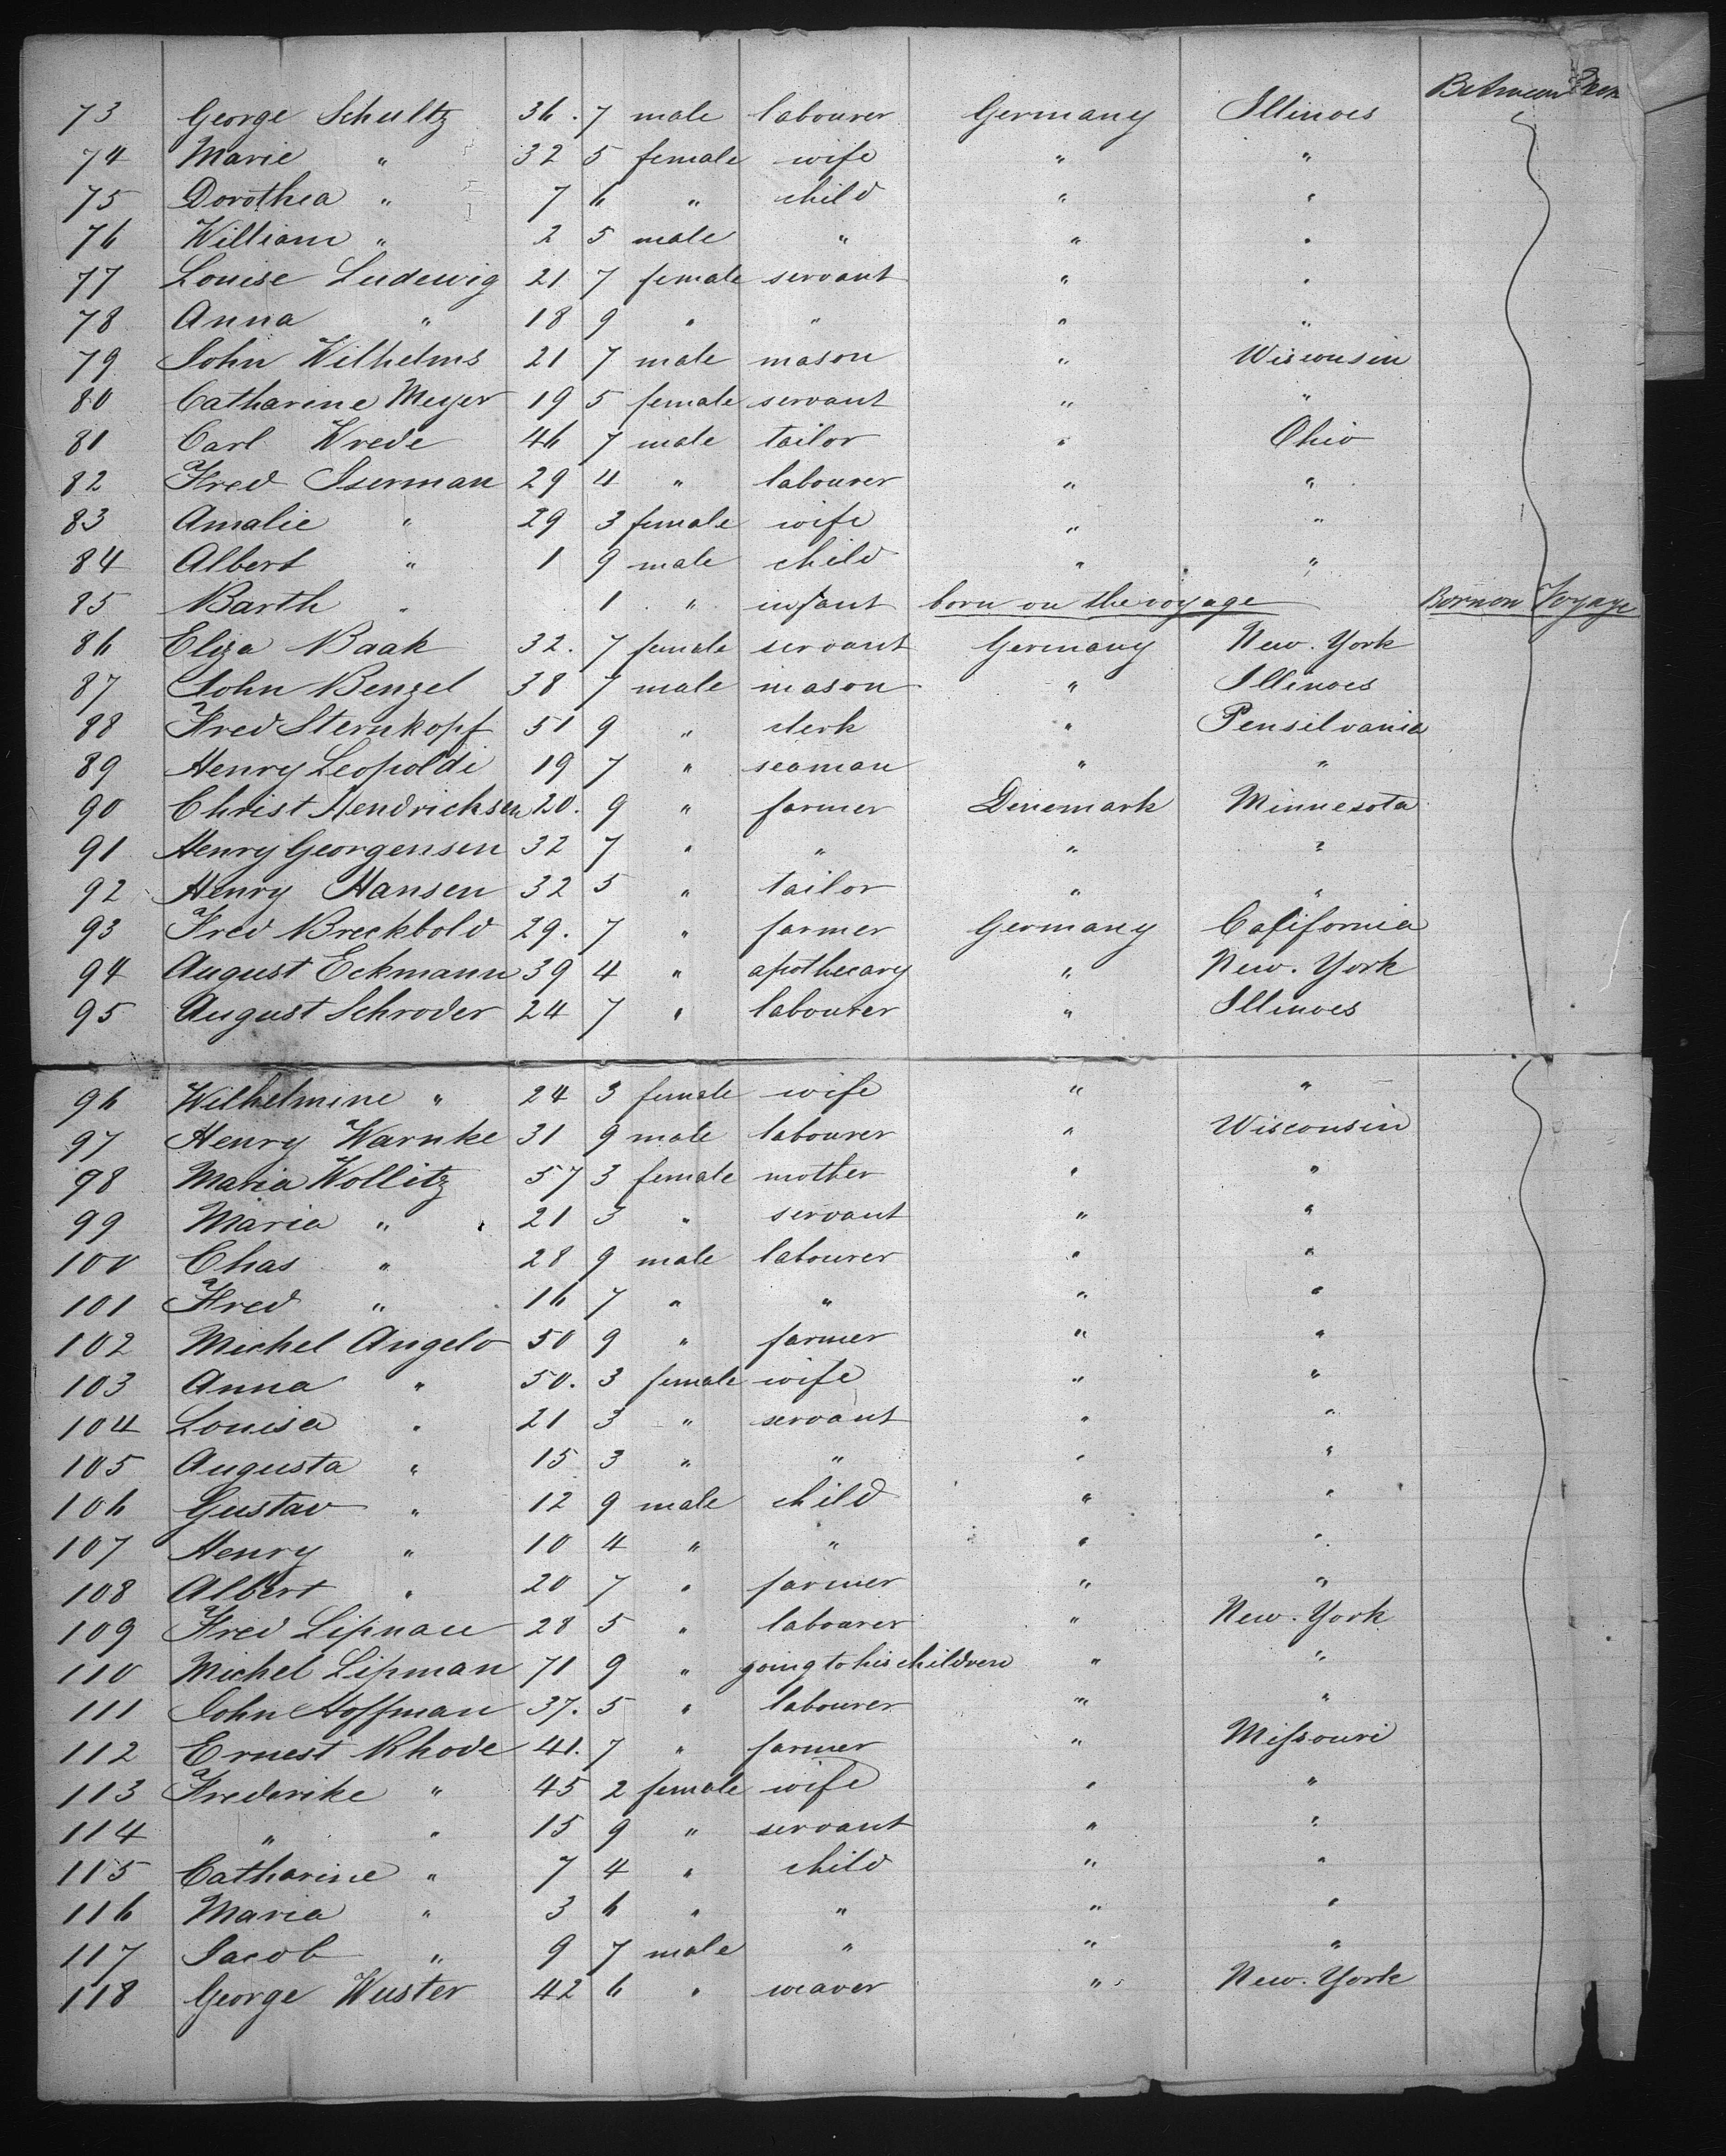 Between Deck
73 George Schultz 36. 7 male labourer Germany Illinois
74 Marie " 32 5 female wife " "
75 Dorothea " 7 6 " child " "
76 William " 2 5 male " " "
77 Louise Ludewig 21 7 female servant " "
78 Anna " 18 9 " " " "
79 John Wilhelms 21 7 male mason " Wisconsin
80 Catharine Meyer 19 5 female servant " "
81 Carl Wrede 46 7 male tailor " Ohio
82 Fred Iserman 29 4 " labourer " "
83 Amalie " 29 3 female wife " "
84 Albert " 1 9 male child " "
85 Barth " 1 " infant born on the voyage Born on Voyage
86 Eliza Baak 32. 7 female servant Germany New. York
87 John Benzel 38 7 male mason " Illinoes
88 Fred Sternkopf 51 9 " clerk " Pensilvania
89 Henry Leopoldi 19 7 " seaman " "
90 Christ Hendrichsen 20. 9 " farmer Denemark Minnesota
91 Henry Georgensen 32 7 " " " "
92 Henry Hansen 32 5 " tailor " "
93 Fred Breckbold 29. 7 " farmer Germany California
94 August Eckmann 39 4 " apothecary " New. York
95 August Schroder 24 7 " labourer " Illinoes
96 Wilhelmine " 24 3 female wife " "
97 Henry Warnke 31 9 male labourer " Wisconsin
98 Maria Wollitz 57 3 female mother " "
99 Maria " 21 3 " servant " "
100 Chas " 28 9 male labourer " "
101 Fred " 16 7 " " " "
102 Michel Angelo 50 9 " farmer " "
103 Anna " 50. 3 female wife " "
104 Louisa " 21 3 " servant " "
105 Augusta " 15 3 " " " "
106 Gustav " 12 9 male child " "
107 Henry " 10 4 " " " "
108 Albert " 20 7 " farmer " "
109 Fred Lipnau 28 5 " labourer " New. York
110 Michel Lipman 71 9 " going to his children " "
111 John Hoffman 37. 5 " labourer " "
112 Ernest Rhode 41. 7 " farmer " Missouri
113 Frederike " 45 2 female wife " "
114 " " 15 9 " servant " "
115 Catharine " 7 4 " child " "
116 Maria " 3 6 " " " "
117 Jacob " 9 7 male " " "
118 George Wuster 42 6 " weaver " New. York